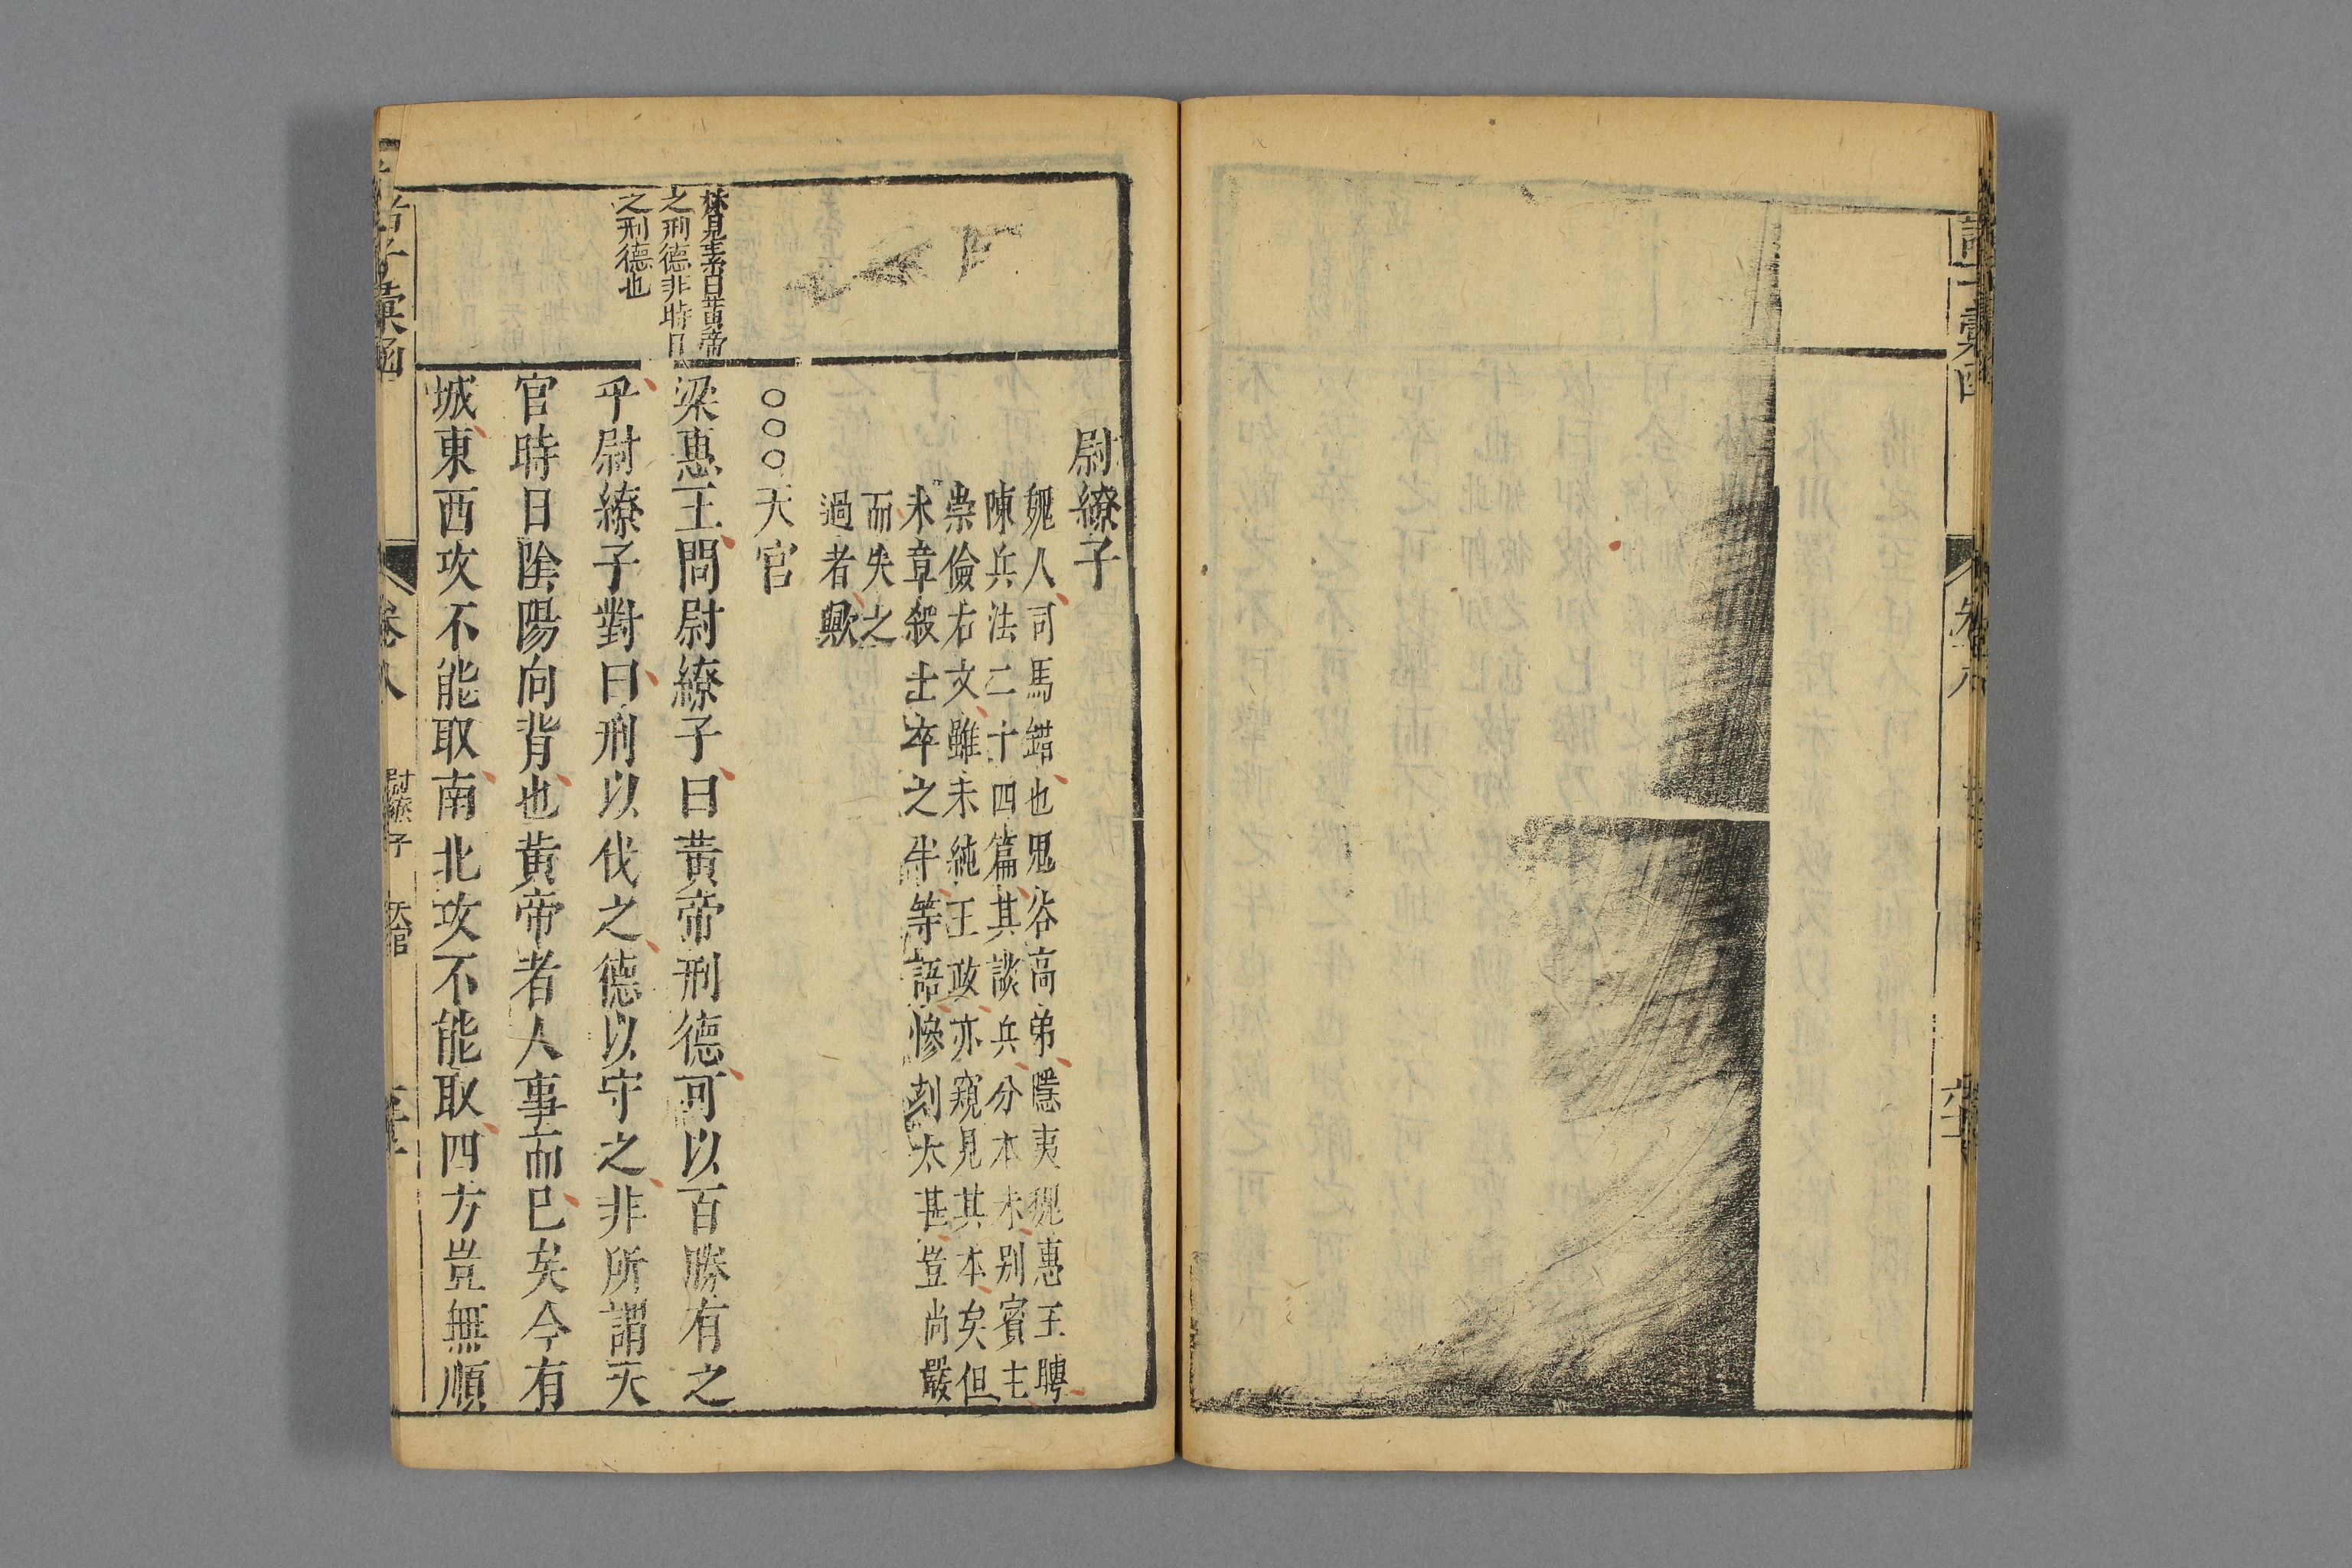 尉繚子
魏人司馬錯也鬼谷高弟隱夷魏惠王聘
陳兵法二十四篇其談兵分本末別賓主
崇儉右文雖未純王政亦窺見其本矣但
末章殺士卒之半等語慘刻太甚豈尚嚴
而失之
過者歟
○○○天官
梁惠王問尉繚子曰黃帝刑德可以百勝有之
乎尉繚子對曰刑以伐之德以守之非所謂天
官時日陰陽向背也黃帝者人事而已矣今有
城東西攻不能取南北攻不能取四方豈無順
林見素曰黃帝
之刑德非時日
之刑德也
諸子彙函
卷八
尉繚子
天官